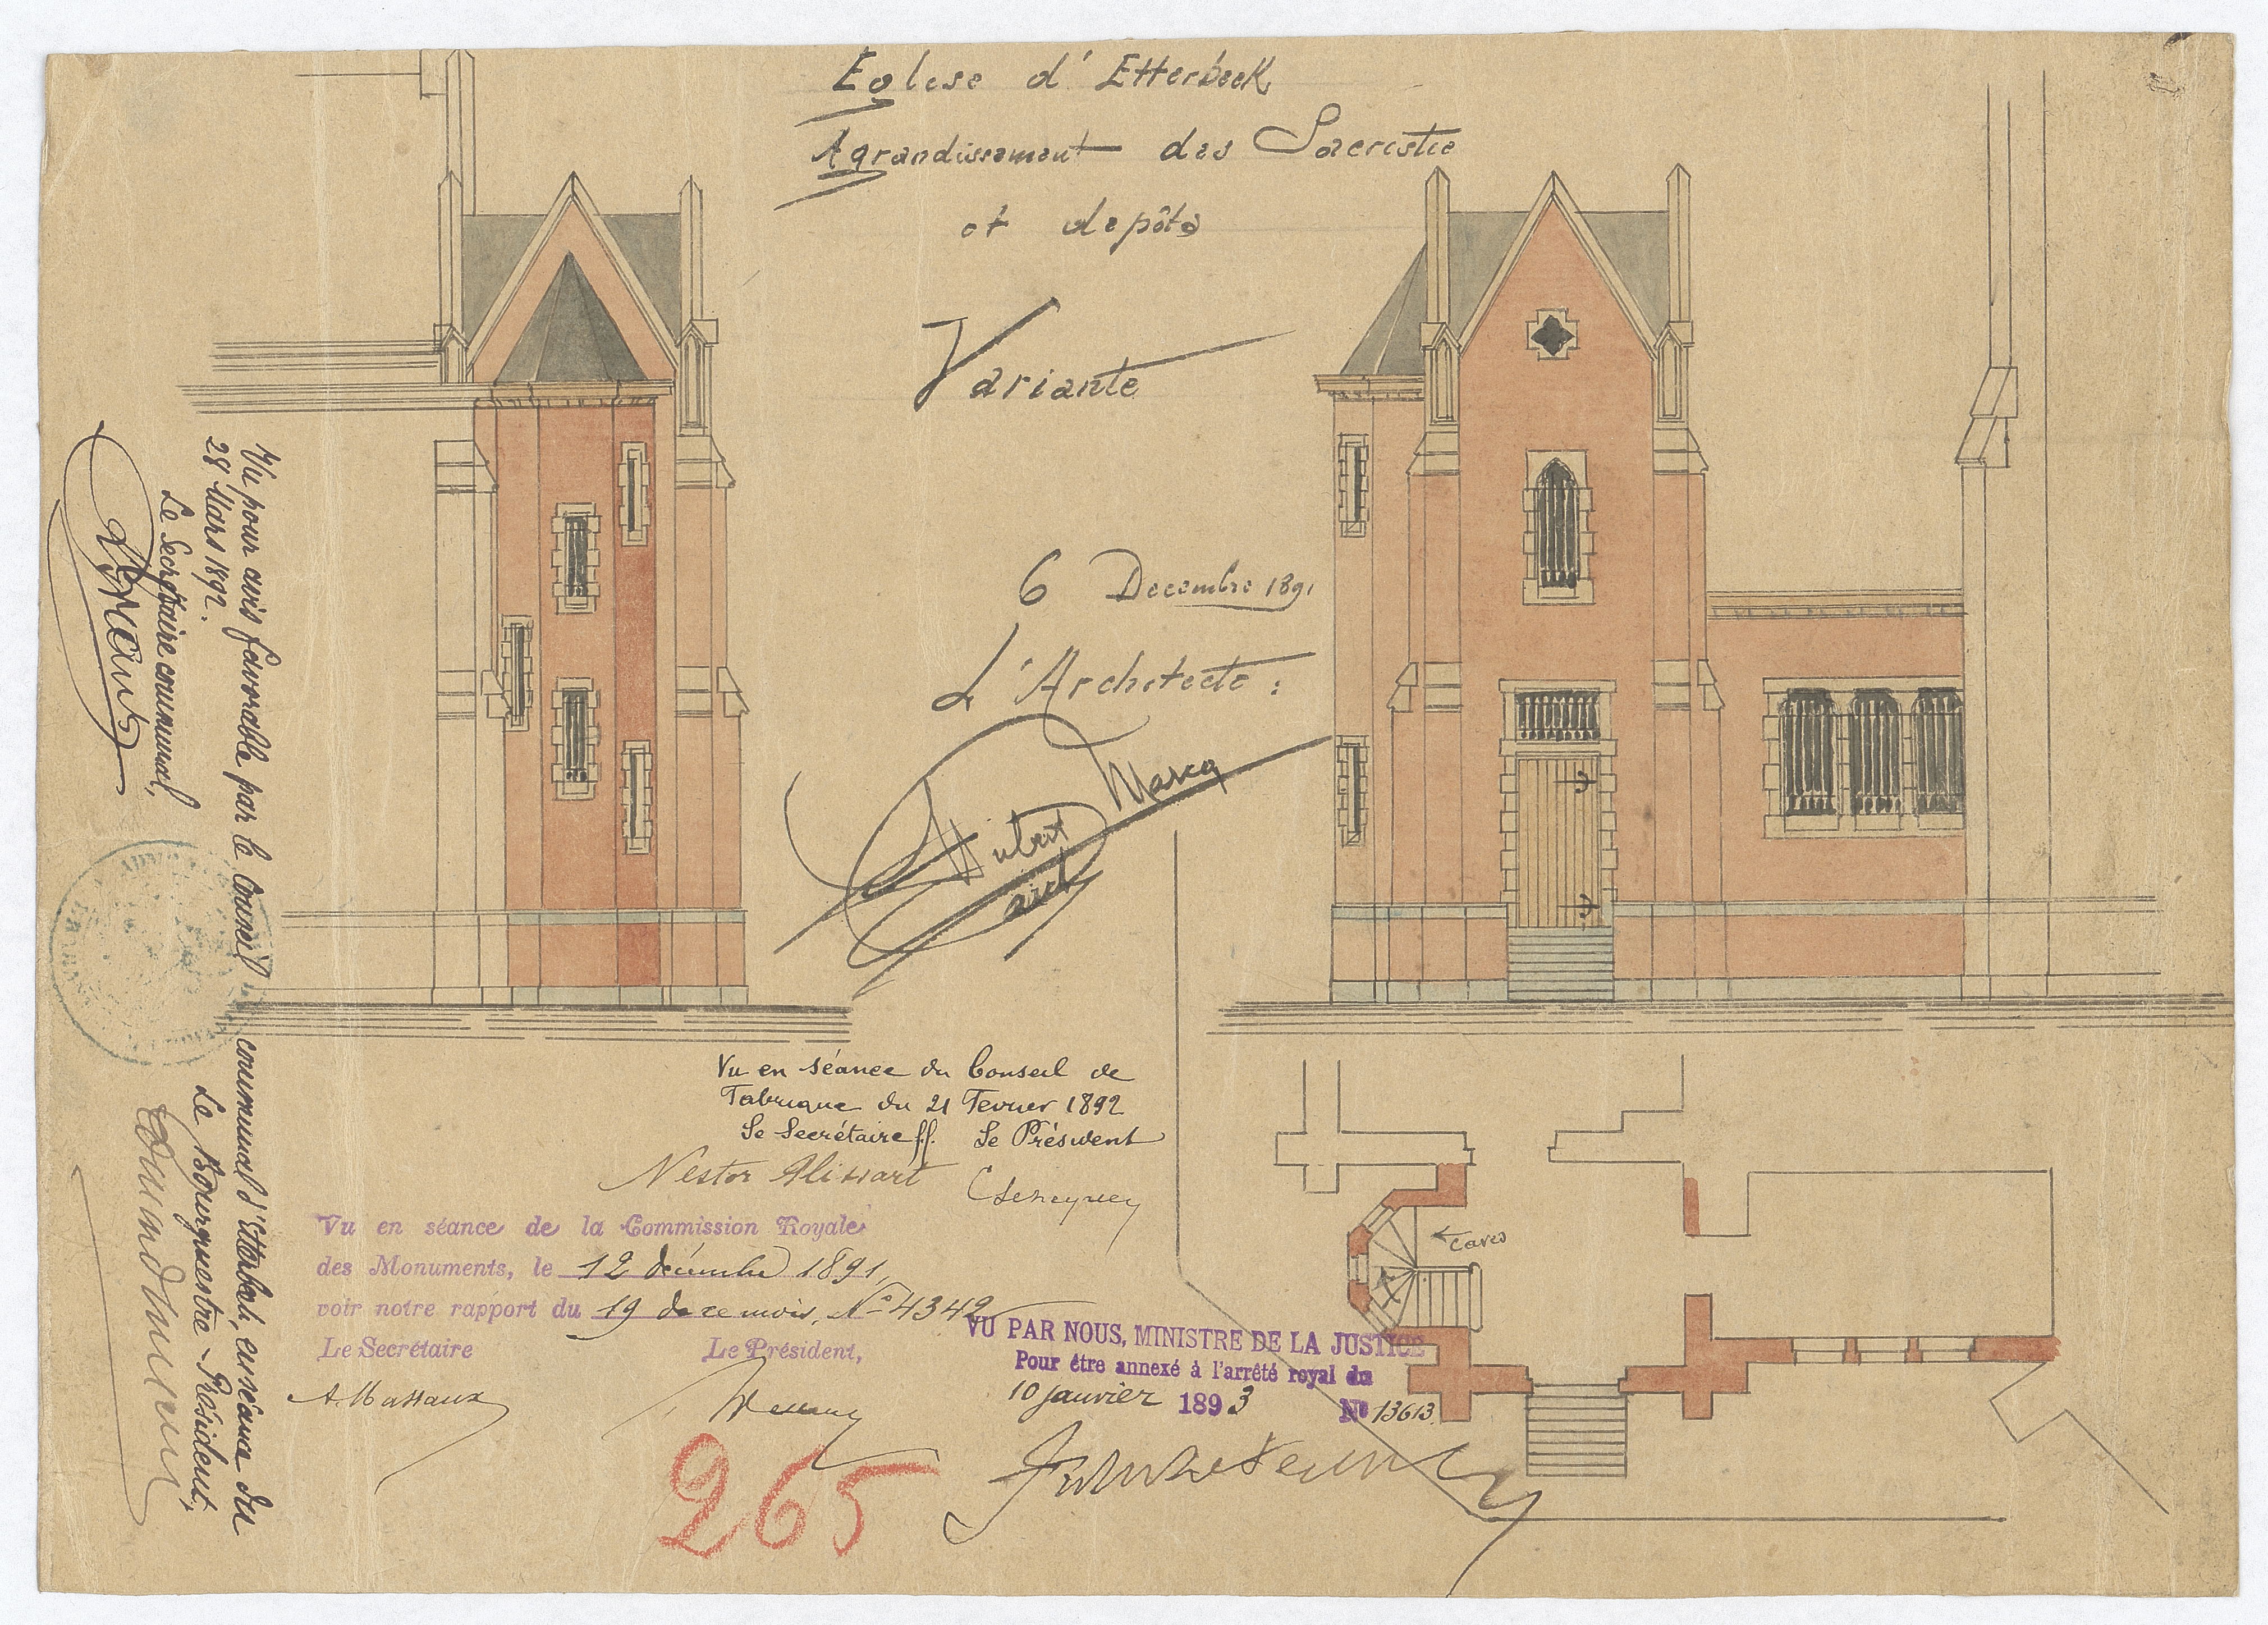 Eglise d'Etterbeek
Agrandissement des Sacristie
et depôts
Variante
6 Decembre 1891
L'Architecte :
Hubert Marcq
arch
Vu pour avis favorable par le Conseil communal d'Etterbeek, en séance du
28 Mars 1892.
Le Secrétaire communal,
Le Bourgmestre-Président,
Vu en séance du Conseil de
Fabrique du 21 Fevrier 1892
Le Secrétaire ff. Le Président
Nestor Alissart
Vu en séance de la Commission Royale
des Monuments, le 12 décembre 1891,
voir notre rapport du 19 de ce mois, No 4342
Le Secrétaire Le Président,
A. Massaux
VU PAR NOUS, MINISTRE DE LA JUSTICE
Pour être annexé à l'arrêté royal du
10 janvier 1893 No 13613.
265
Caves